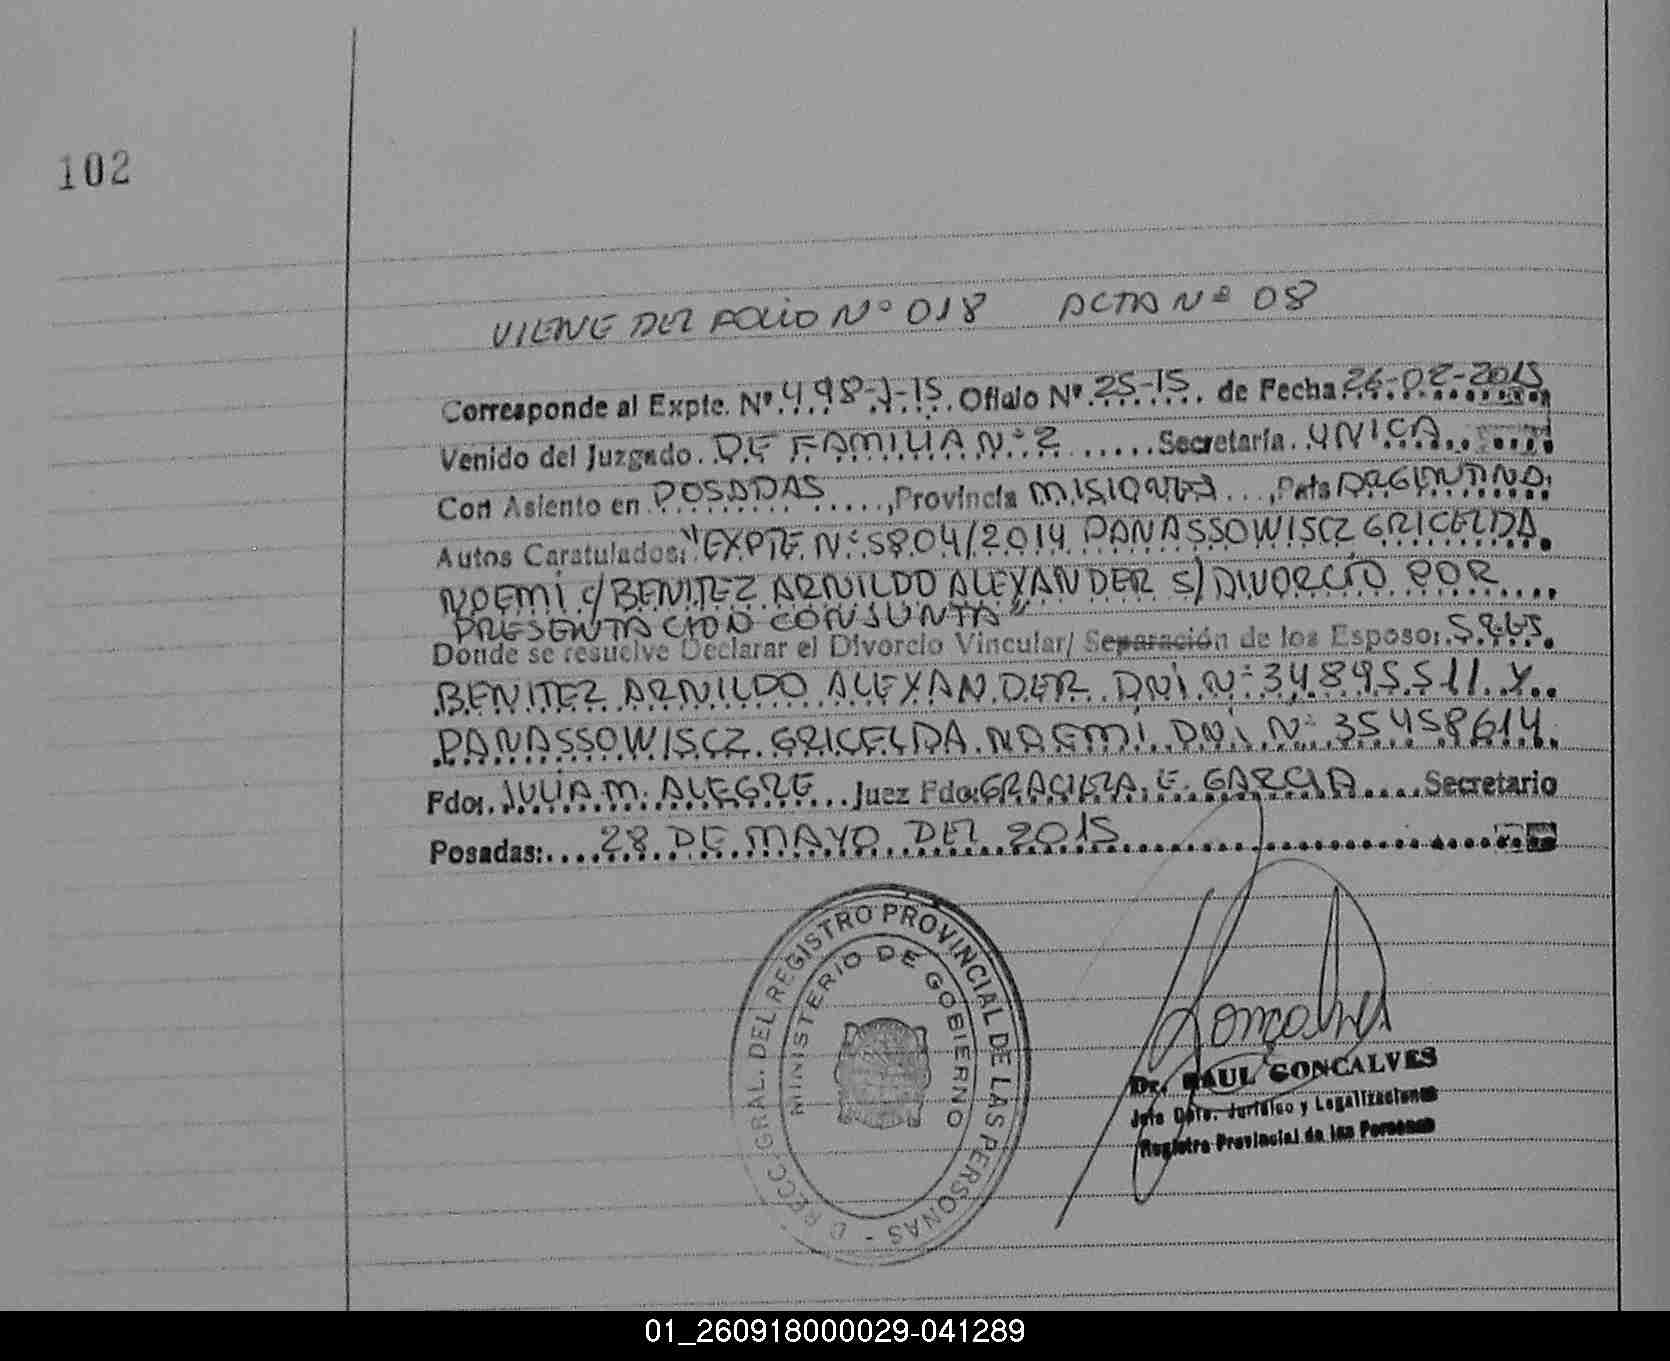 102
VIENE DEL FOLIO Nº 018 ACTA Nº 08
Corresponde al Expte. Nº. 498-J-15. Oficio Nº. 25-15. de Fecha 26-02-2015
Venido del Juzgado. DE FAMILIA Nº 2 ..... Secretaría. UNICA
Con Asiento en POSADAS ....., Provincia MISIONES ..., País ARGENTINA.
Autos Caratulados: "EXPTE Nº 5804/2014 PANASSOWISCZ GRICELDA
NOEMÍ c/ BENITEZ ARNILDO ALEXANDER S/ DIVORCIO POR
PRESENTACION CONJUNTA"
Donde se resuelve Declarar el Divorcio Vincular/ Separación de los Esposo: SRES.
BENITEZ ARNILDO ALEXANDER DNI Nº 34.895511 Y
PANASSOWISCZ GRICELDA NOEMÍ DNI Nº 35458614
Fdo: JULIA M. ALEGRE Juez Fdo: GRACIELA E. GARCIA .... Secretario
Posadas: .... 28 DE MAYO DEL 2015
DIRECC. GRAL. DEL REGISTRO PROVINCIAL DE LAS PERSONAS -
MINISTERIO DE GOBIERNO
Goncalves
Dr. RAUL GONCALVES
Jefe Dpto. Jurídico y Legalizaciones
Registro Provincial de las Personas
01_260918000029-041289